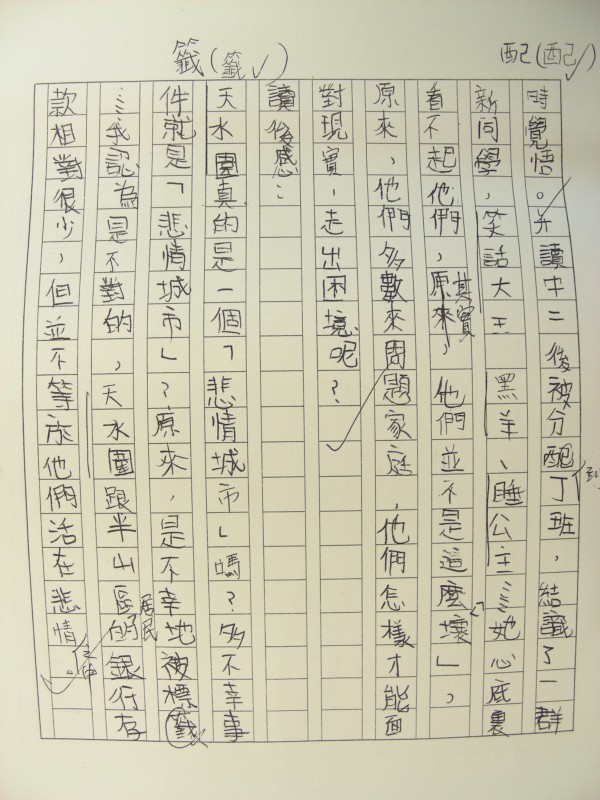 配(配✓)
籤(籤✓)
時覺悟。升讀中二後被分配丁班,結識了一群
新同學,笑話大王、黑羊、睡公主……她心底裏
看不起他們,原來,他們並不是這麼壞」,
其實
原來,他們多數來問題家庭,他們怎樣才能面
對現實,走出困境呢?
讀後感:
天水圍真的是一個「悲情城市」嗎?多不幸事
件就是「悲情城市」?原來,是不幸地被標籤
……我認為是不對的,天水圍跟半山區的銀行存
居民
款相對很少,但並不等於他們活在悲情。